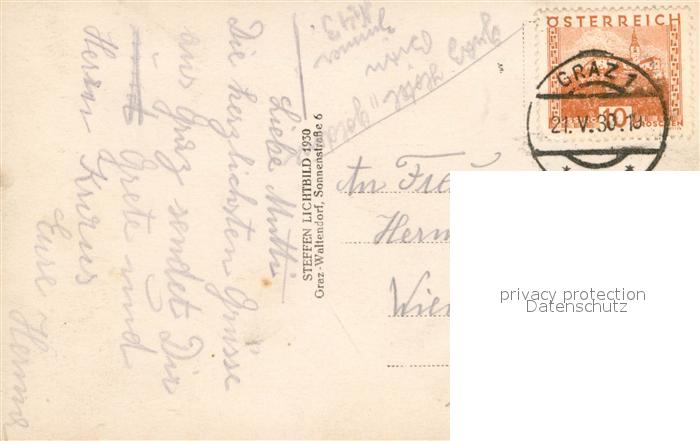 Liebe Mutti
Die herzlichsten Grüsse
aus Graz sendet Dir
Grete und
Herrn Kurus
Eure Hermi
bin
Zimmer
STEFFEN LICHTBILD 1930
Graz-Waltendorf, Sonnenstraße 6
ÖSTERREICH
GRAZ 1
21.V.30.19
10
GROSCHEN
An
Herm
Wien
privacy protection
Datenschutz